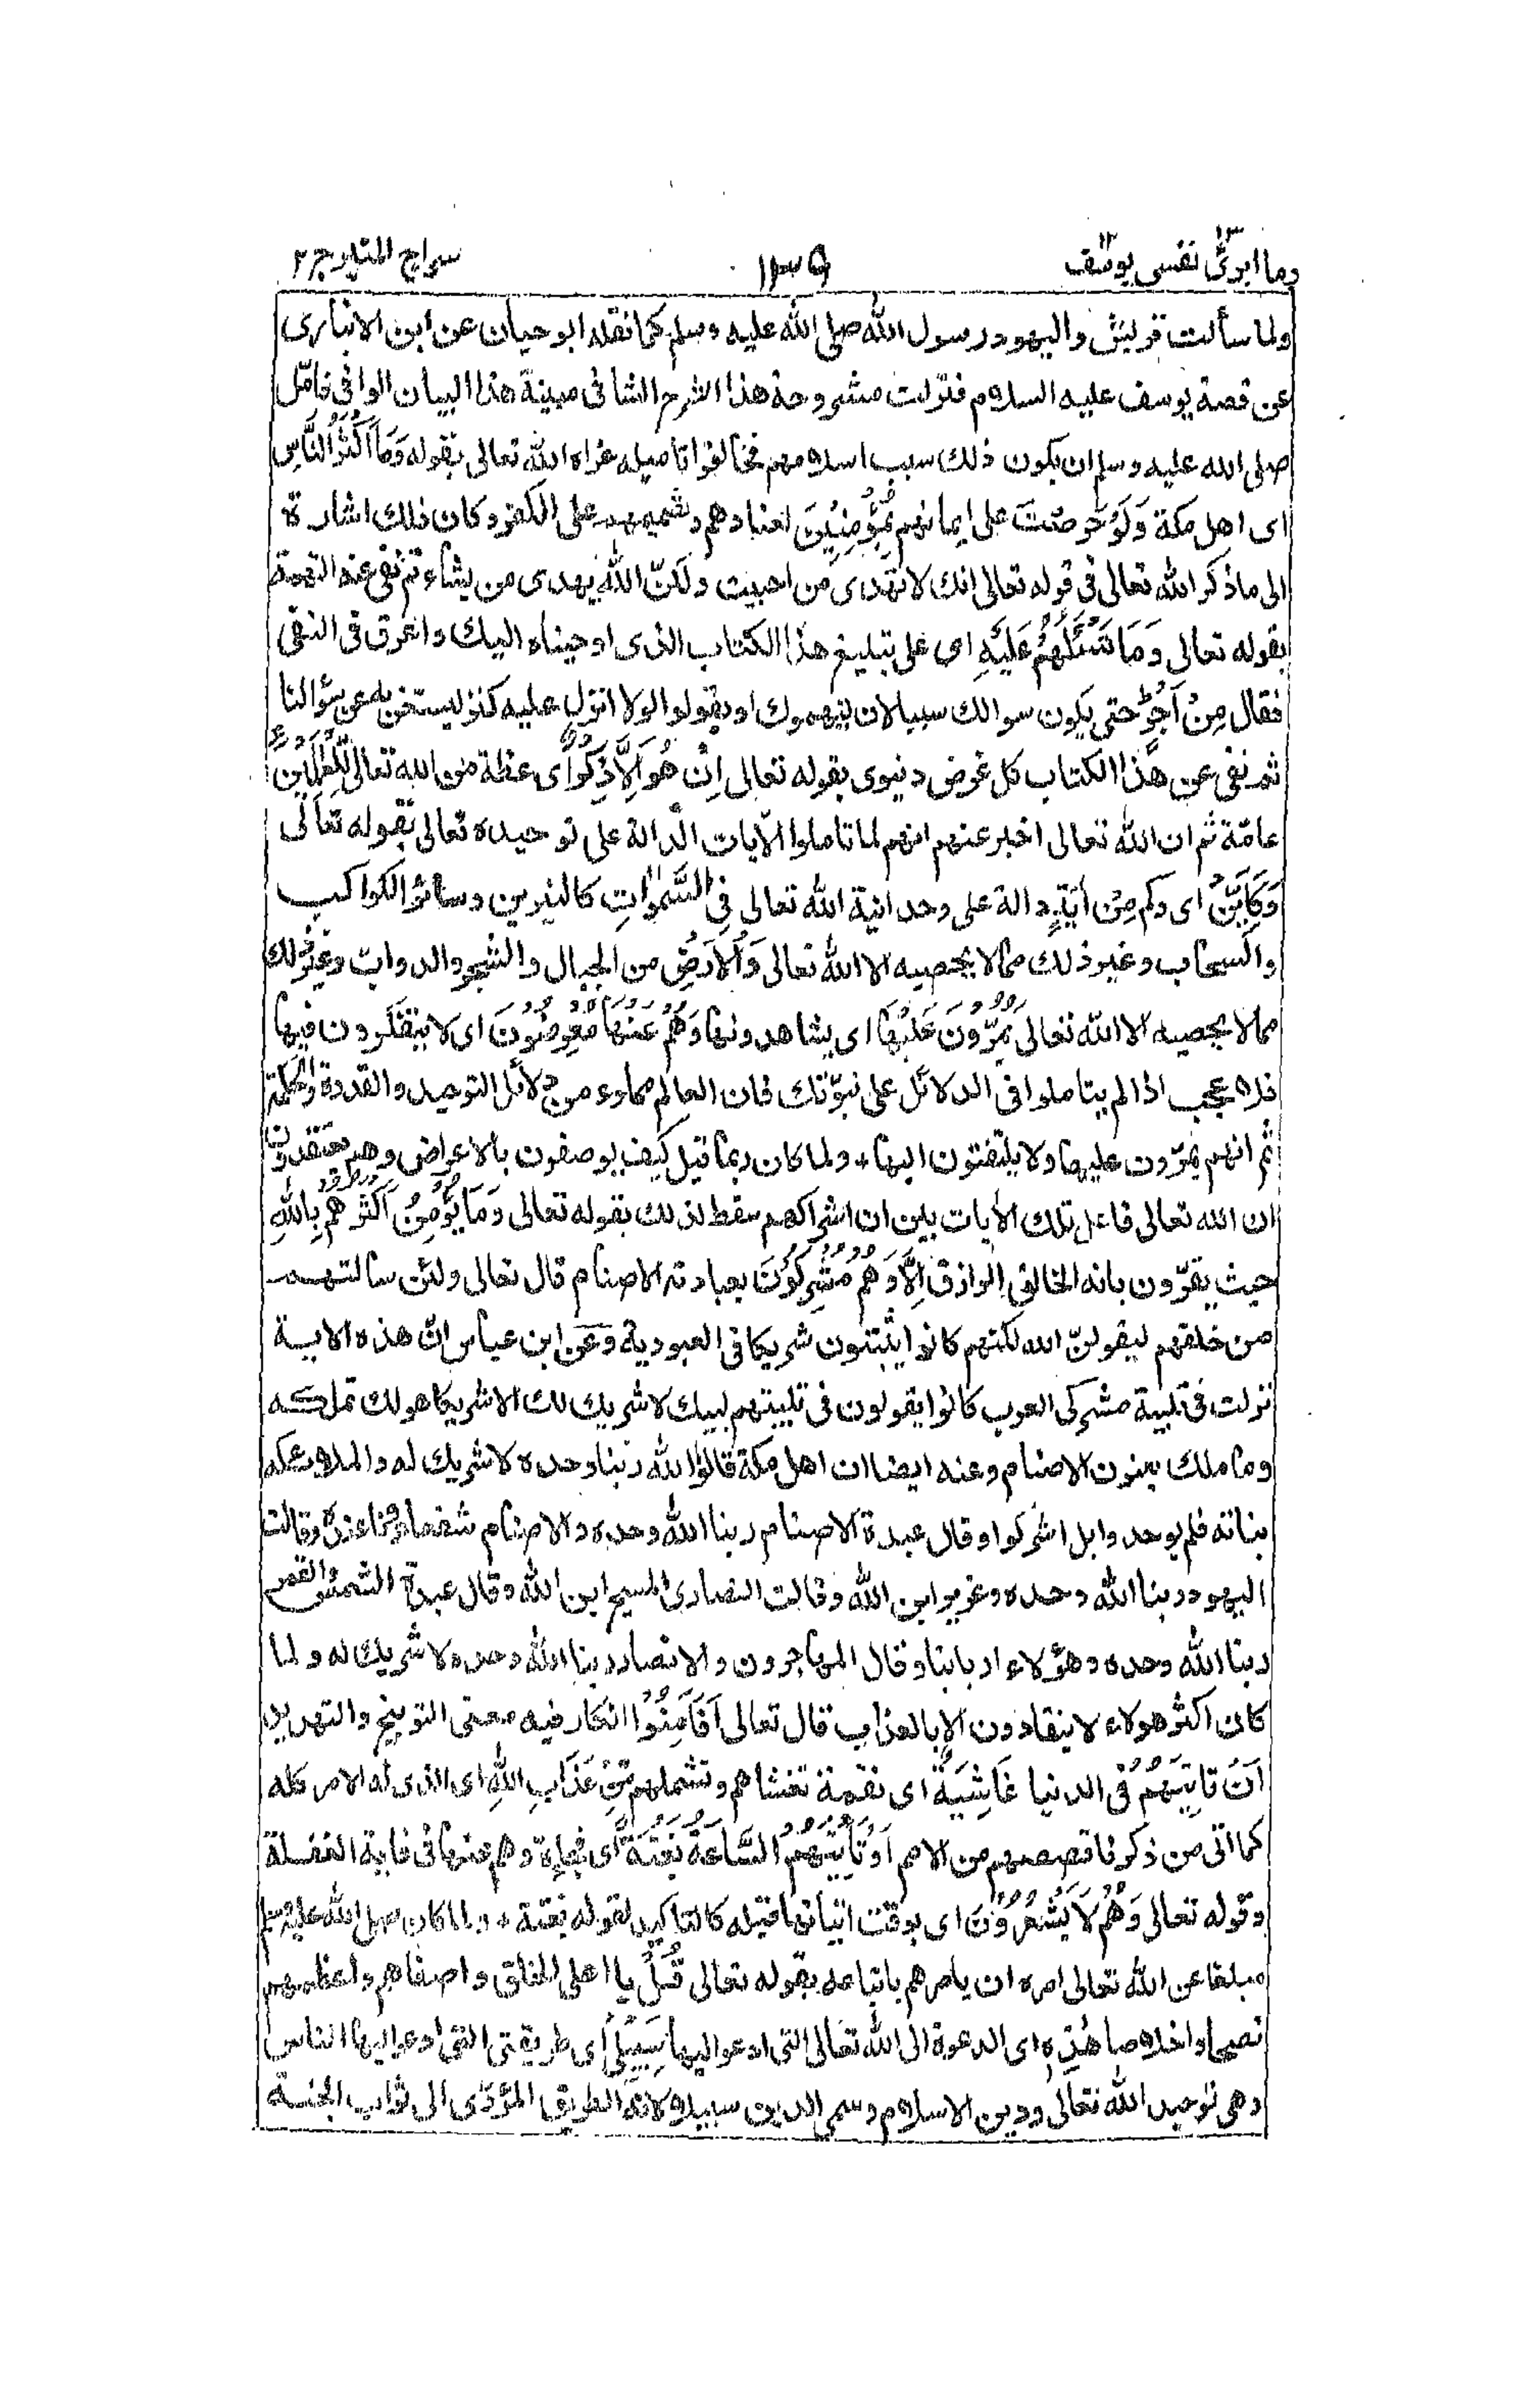 وما ابرئ نفسى ١٣ يوسف ١٢
١١٣٥
سراج المنير ج ٢
ولما سألت قريش واليهود رسول الله صلى الله عليه وسلم كما نقله ابو حيان عن ابن الانبارى
عن قصة يوسف عليه السلام فنزلت مشروحة هذا الشرح الشافى مبينة هذا البيان الوافى فامّل
صلى الله عليه وسلم ان يكون ذلك سبب اسلامهم فخالفوا تاميله عزاه الله تعالى بقوله وَمَا اَكْثَرُ النَّاسِ
اى اهل مكة وَلَوْ حَرَصْتَ على ايمانهم بِمُؤْمِنِيْنَ لعنادهم وتصميمهم على الكفر وكان ذلك اشارة
الى ما ذكر الله تعالى فى قوله تعالى انك لا تهدى من احببت ولكنّ الله يهدى من يشاء ثم نفى عنه التهمة
بقوله تعالى وَمَا تَسْئَلُهُمْ عَلَيْهِ اى على تبليغ هذا الكتاب الذى اوحيناه اليك واغرق فى النفى
فقال مِنْ اَجْرٍ حتى يكون سوالك سببا لان يتهموك او يقولوا لولا انزل عليه كنز ليستغنى به عن سؤالنا
ثم نفى عن هذا الكتاب كل غرض دنيوى بقوله تعالى اِنْ هُوَ اِلَّا ذِكْرٌ اى عظة من الله تعالى لِّلْعٰلَمِيْنَ
عامّة ثم ان الله تعالى اخبر عنهم انهم لما تاملوا الآيات الدالة على توحيده تعالى بقوله تعالى
وَكَاَيِّنْ اى وكم مِّنْ اٰيَةٍ دالة على وحدانية الله تعالى فِى السَّمٰوٰتِ كالنيرين وسائر الكواكب
والسحاب وغير ذلك مما لا يحصيه الا الله تعالى وَالْاَرْضِ من الجبال والشجر والدواب وغير ذلك
مما لا يحصيه الا الله تعالى يَمُرُّوْنَ عَلَيْهَا اى يشاهدونها وَهُمْ عَنْهَا مُعْرِضُوْنَ اى لا يتفكرون فيها
فلا عجب اذا لم يتاملوا فى الدلائل على نبوّتك فان العالم مملوء من دلائل التوحيد والقدرة والحكمة
ثم انهم يمرّون عليها ولا يلتفتون اليها ٭ ولما كان ربما قيل كيف يوصفون بالاعراض وهم معتقدون
ان الله تعالى فاعل تلك الآيات بين ان اشراكهم سقط لذلك بقوله تعالى وَمَا يُؤْمِنُ اَكْثَرُهُمْ بِاللهِ
حيث يقرّون بانه الخالق الرازق اِلَّا وَهُمْ مُّشْرِكُوْنَ بعبادته الاصنام قال تعالى ولئن سالتهم
من خلقهم ليقولنّ الله لكنهم كانوا يثبتون شريكا فى العبودية وعن ابن عباس انّ هذه الاية
نزلت فى تلبية مشركى العرب كانوا يقولون فى تلبيتهم لبيك لا شريك لك الا شريكا هو لك تملكه
وما ملك يعنون الاصنام وعنه ايضا ان اهل مكة قالوا الله ربنا وحده لا شريك له والملائكة
بناته فلم يوحدوا بل اشركوا وقال عبدة الاصنام ربنا الله وحده والاصنام شفعاؤنا عنده وقالت
اليهود ربنا الله وحده وعزير ابن الله وقالت النصارى المسيح ابن الله وقال عبدة الشمس والقمر
ربنا الله وحده وهؤلاء اربابنا وقال المهاجرون والانصار ربنا الله وحده لا شريك له ولما
كان اكثر هولاء لا ينقادون الا بالعذاب قال تعالى اَفَاَمِنُوْا انكار فيه معنى التوبيخ والتهديد
اَنْ تَاْتِيَهُمْ فى الدنيا غَاشِيَةٌ اى نقمة تغشاهم وتشملهم مِّنْ عَذَابِ اللهِ اى الذى له الامر كله
كما اتى من ذكرنا قصصهم من الامم اَوْ تَاْتِيَهُمُ السَّاعَةُ بَغْتَةً اى فجاءة وهم عنها فى غاية الغفلة
وقوله تعالى وَهُمْ لَا يَشْعُرُوْنَ اى بوقت اتيانها قبله كالتاكيد لقوله بغتة ٭ ولما كان صلى الله عليه وسلم
مبلغا عن الله تعالى امره ان يامرهم باتباعه بقوله تعالى قُلْ يا اعلى الخلق واصفاهم واعظمهم
نصحا واخلاصا هٰذِهٖ اى الدعوة الى الله تعالى التى ادعو اليها سَبِيْلِىْ اى طريقتى التى ادعو اليها الناس
وهى توحيد الله تعالى ودين الاسلام وسمى الدين سبيلا لانه الطريق المؤدّى الى ثواب الجنة